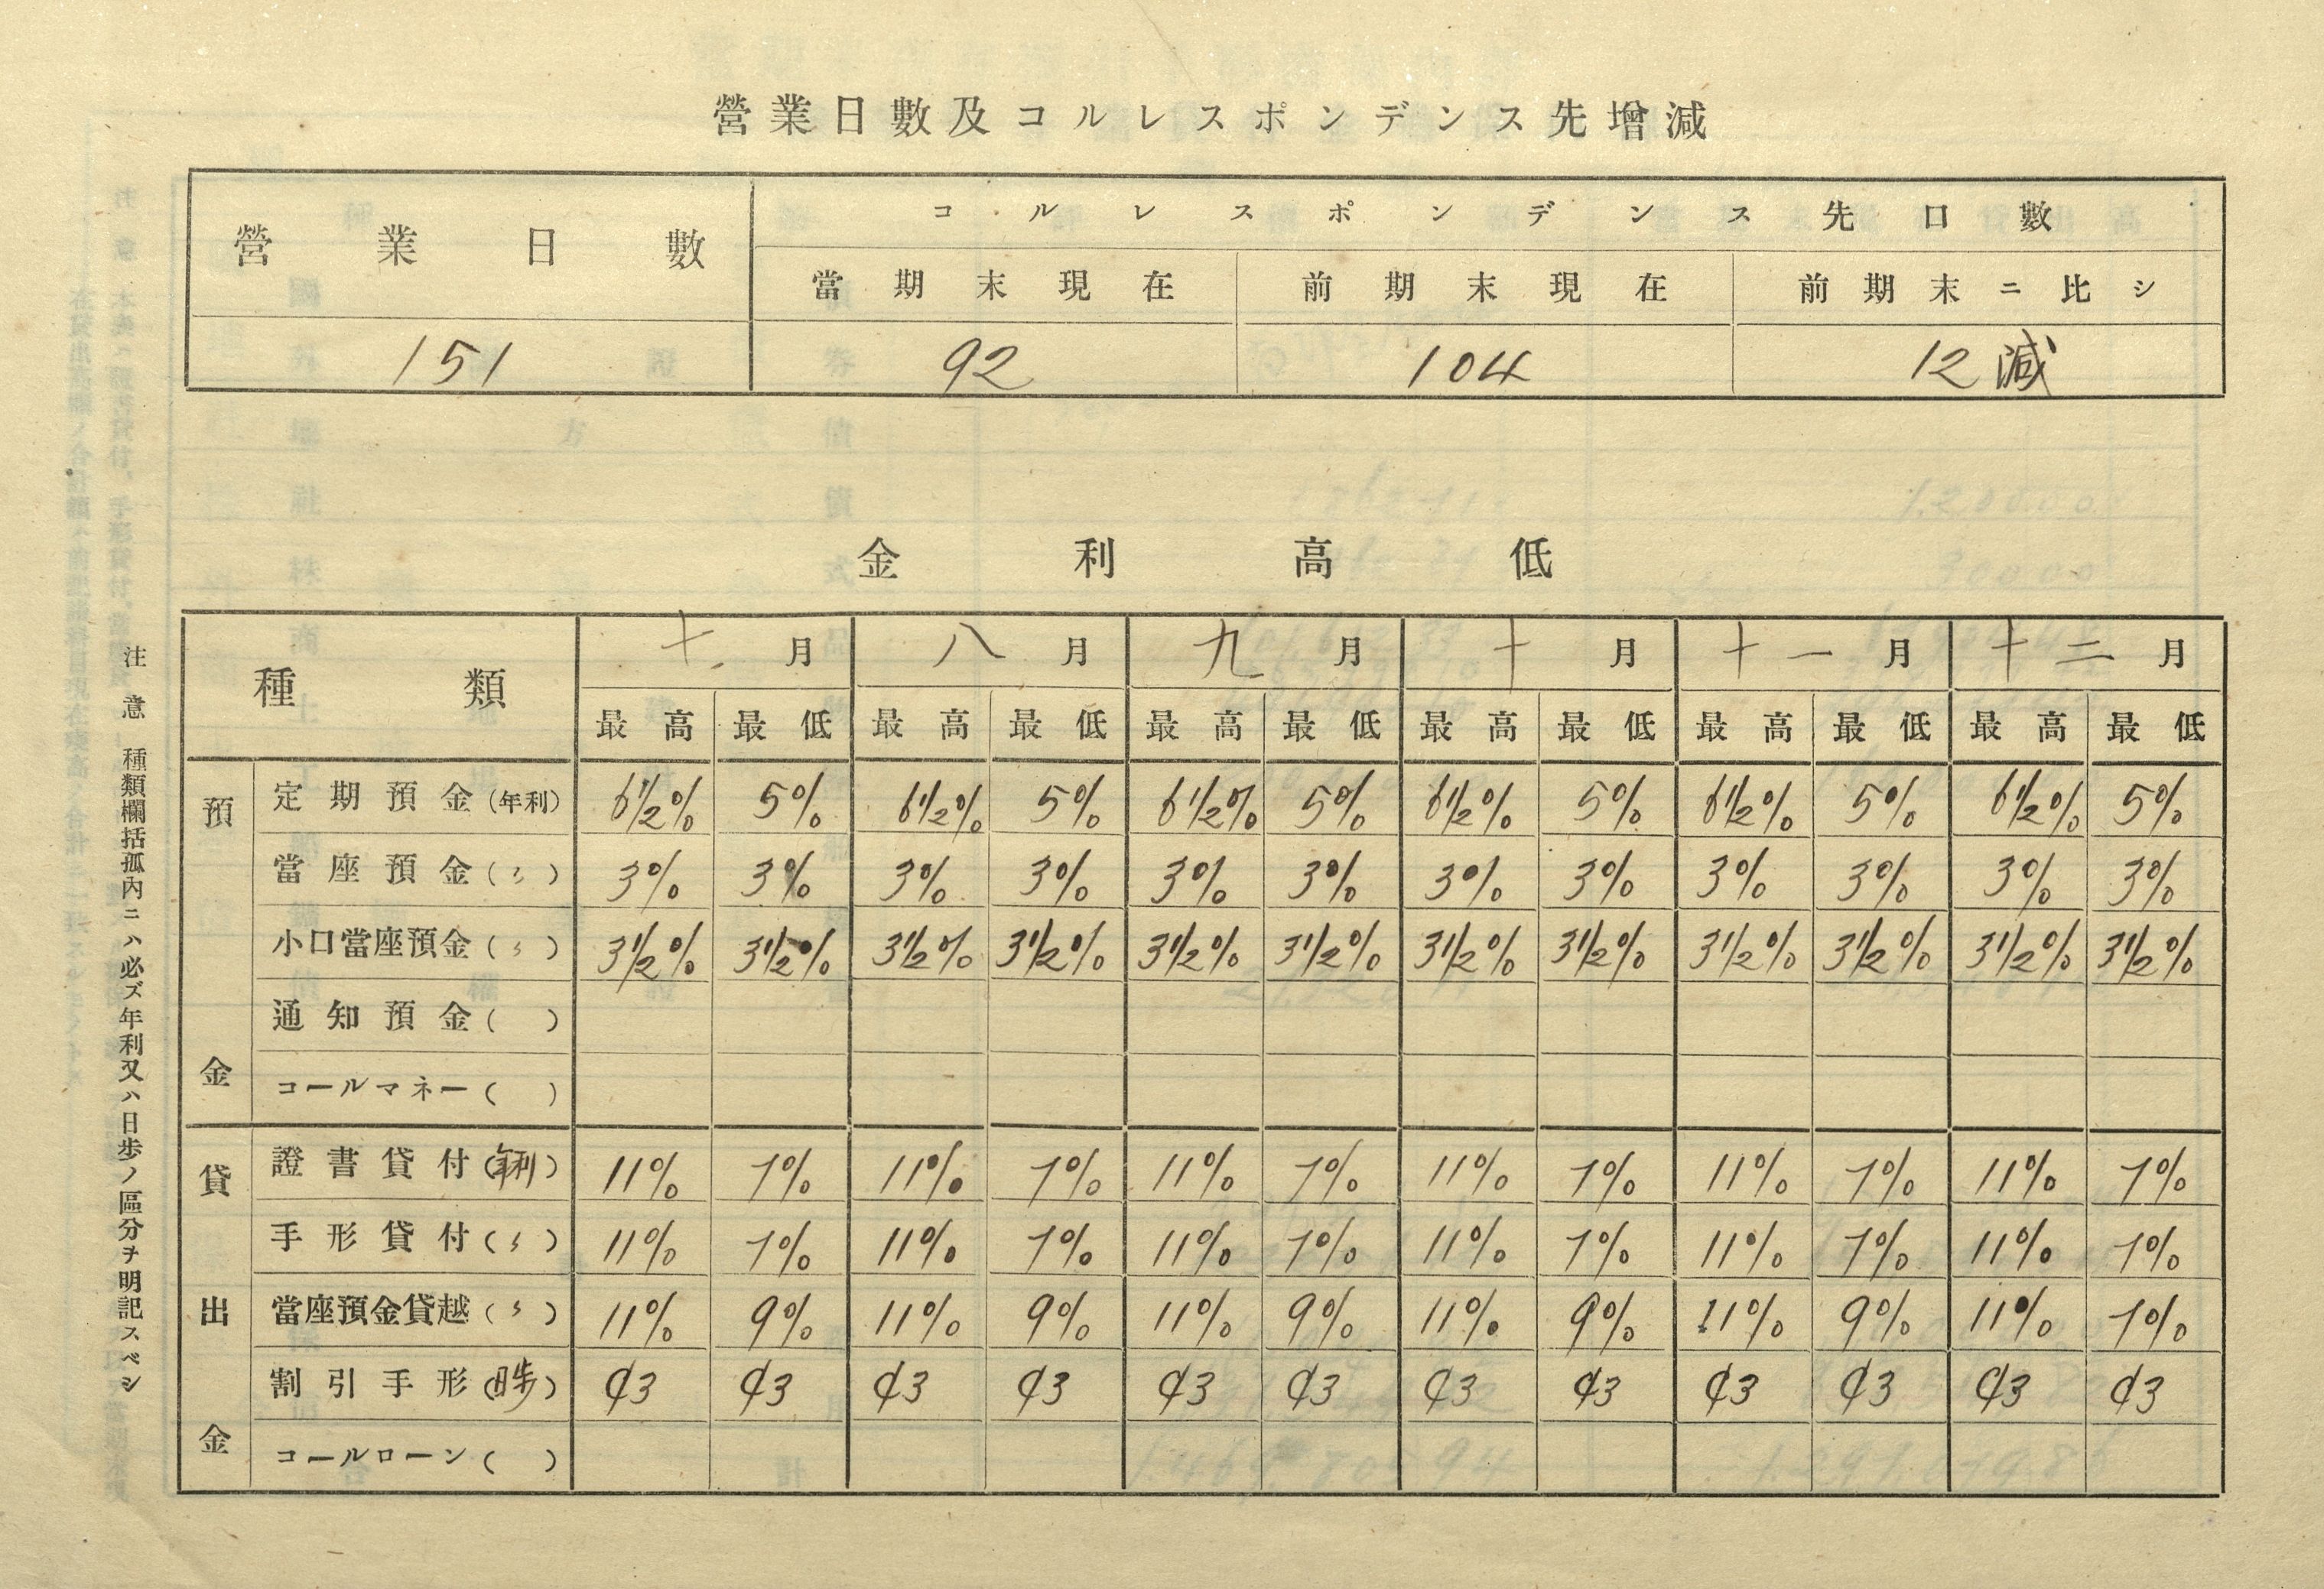 營業日數及コルレスポンデンス先增減
營業日數 コルレスポンデンス先口數
當期末現在 前期末現在 前期末ニ比シ
151 92 104 12減
金利高低
種類 七月 八月 九月 十月 十一月 十二月
最高 最低 最高 最低 最高 最低 最高 最低 最高 最低 最高 最低
預金
定期預金(年利) 6½% 5% 6½% 5% 6½% 5% 6½% 5% 6½% 5% 6½% 5%
當座預金(〻) 3% 3% 3% 3% 3% 3% 3% 3% 3% 3% 3% 3%
小口當座預金(〻) 3½% 3½% 3½% 3½% 3½% 3½% 3½% 3½% 3½% 3½% 3½% 3½%
通知預金( )
コールマネー( )
貸出金
證書貸付(年利) 11% 7% 11% 7% 11% 7% 11% 7% 11% 7% 11% 7%
手形貸付(〻) 11% 7% 11% 7% 11% 7% 11% 7% 11% 7% 11% 7%
當座預金貸越(〻) 11% 9% 11% 9% 11% 9% 11% 9% 11% 9% 11% 7%
割引手形(日步) ¢3 ¢3 ¢3 ¢3 ¢3 ¢3 ¢3 ¢3 ¢3 ¢3 ¢3 ¢3
コールローン( )
注意 種類欄括孤內ニハ必ズ年利又ハ日步ノ區分ヲ明記スベシ